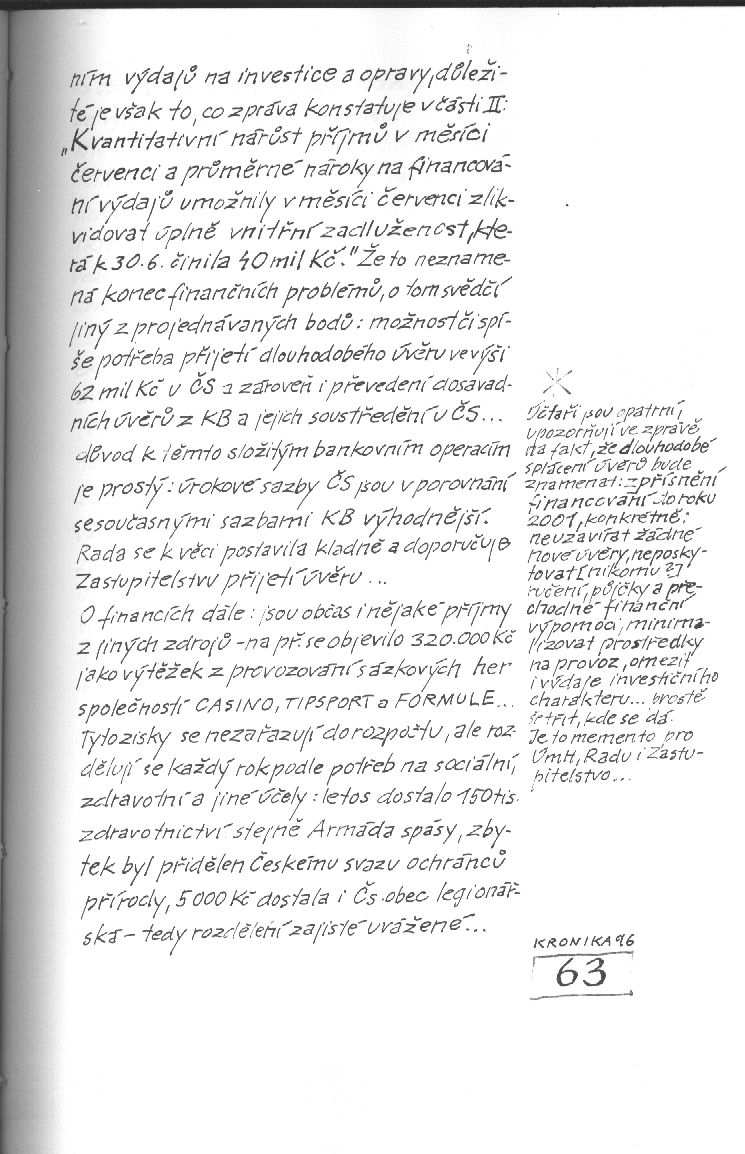 ním výdajů na investice a opravy, důleži-
té je však to, co zpráva konstatuje v části II:
"Kvantitativní nárůst příjmů v měsíci
červenci a průměrné nároky na financová-
ní výdajů umožnily v měsíci červenci zlik-
vidovat úplně vnitřní zadluženost, kte-
rá k 30.6. činila 40 mil Kč." Že to nezname-
ná konec finančních problémů, o tom svědčí
jiný z projednávaných bodů: možnost či spí-
še potřeba přijetí dlouhodobého úvěru ve výši
62 mil Kč u ČS a zároveň i převedení dosavad-
ních úvěrů z KB a jejich soustředění u ČS...
důvod k těmto složitým bankovním operacím
je prostý: úrokové sazby ČS jsou v porovnání
se současnými sazbami KB výhodnější.
Rada se k věci postavila kladně a doporučuje
Zastupitelstvu přijetí úvěru...
O financích dále: jsou občas i nějaké příjmy
z jiných zdrojů - na př. se objevilo 320.000 Kč
jako výtěžek z provozování sázkových her
společností CASINO, TIPSPORT a FORMULE...
Tyto zisky se nezařazují do rozpočtu, ale roz-
dělují se každý rok podle potřeb na sociální,
zdravotní a jiné účely: letos dostalo 150 tis.
zdravotnictví stejně Armáda spásy, zby-
tek byl přidělen Českému svazu ochránců
přírody, 5 000 Kč dostala i Čs. obec legionář-
ská - tedy rozdělení zajisté uvážené...
Účtaři jsou opatrní,
upozorňují ve zprávě
na fakt, že dlouhodobé
splácení úvěrů bude
znamenat: zpřísnění
financování do roku
2001, konkrétně:
neuzavírat žádné
nové úvěry, neposky-
tovat [nikomu?]
ručení, půjčky a pře-
chodné finanční
výpomoci, minima-
lizovat prostředky
na provoz, omezit
i výdaje investičního
charakteru... prostě
šetřit, kde se dá.
Je to memento pro
ÚmH, Radu i Zastu-
pitelstvo...
KRONIKA 96
63